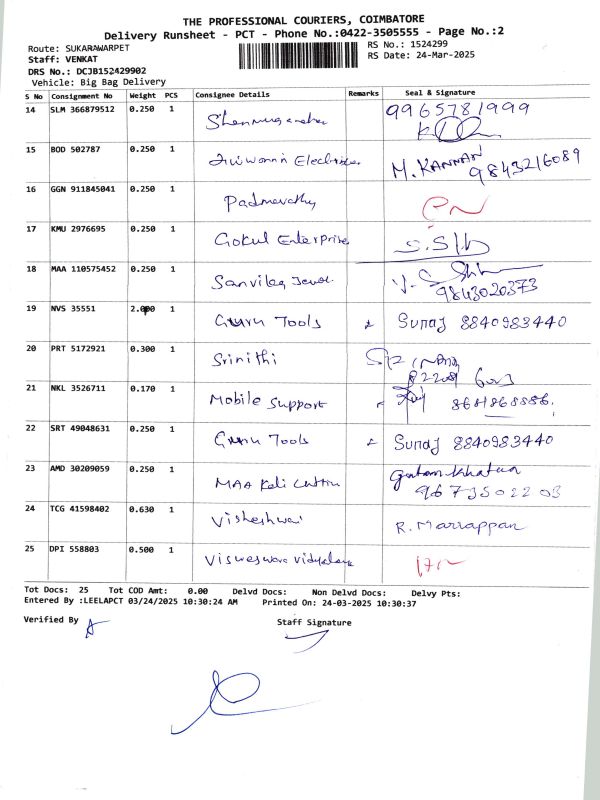 THE PROFESSIONAL COURIERS, COIMBATORE
Delivery Runsheet - PCT - Phone No.:0422-3505555 - Page No.:2
Route: SUKARAWARPET
RS No.: 1524299
Staff: VENKAT
RS Date: 24-Mar-2025
DRS No.: DCJB152429902
Vehicle: Big Bag Delivery
S No Consignment No Weight PCS Consignee Details Remarks Seal & Signature
14 SLM 366879512 0.250 1 9965781999
15 BOD 502787 0.250 1 M. KANNAN
9843216089
16 GGN 911845041 0.250 1 Padmavathy
17 KMU 2976695 0.250 1 Gokul Enterprises
18 MAA 110575452 0.250 1
9843020373
19 NVS 35551 2.000 1 Guru Tools Suraj 8840983440
20 PRT 5172921 0.300 1 Srinithi
21 NKL 3526711 0.170 1 Mobile Support
22 SRT 49048631 0.250 1 Guru Tools Suraj 8840983440
23 AMD 30209059 0.250 1 MAA Kali
9673502203
24 TCG 41598402 0.630 1 R. Marrappan
25 DPI 558803 0.500 1
Tot Docs: 25 Tot COD Amt: 0.00 Delvd Docs: Non Delvd Docs: Delvy Pts:
Entered By :LEELAPCT 03/24/2025 10:30:24 AM Printed On: 24-03-2025 10:30:37
Verified By Staff Signature